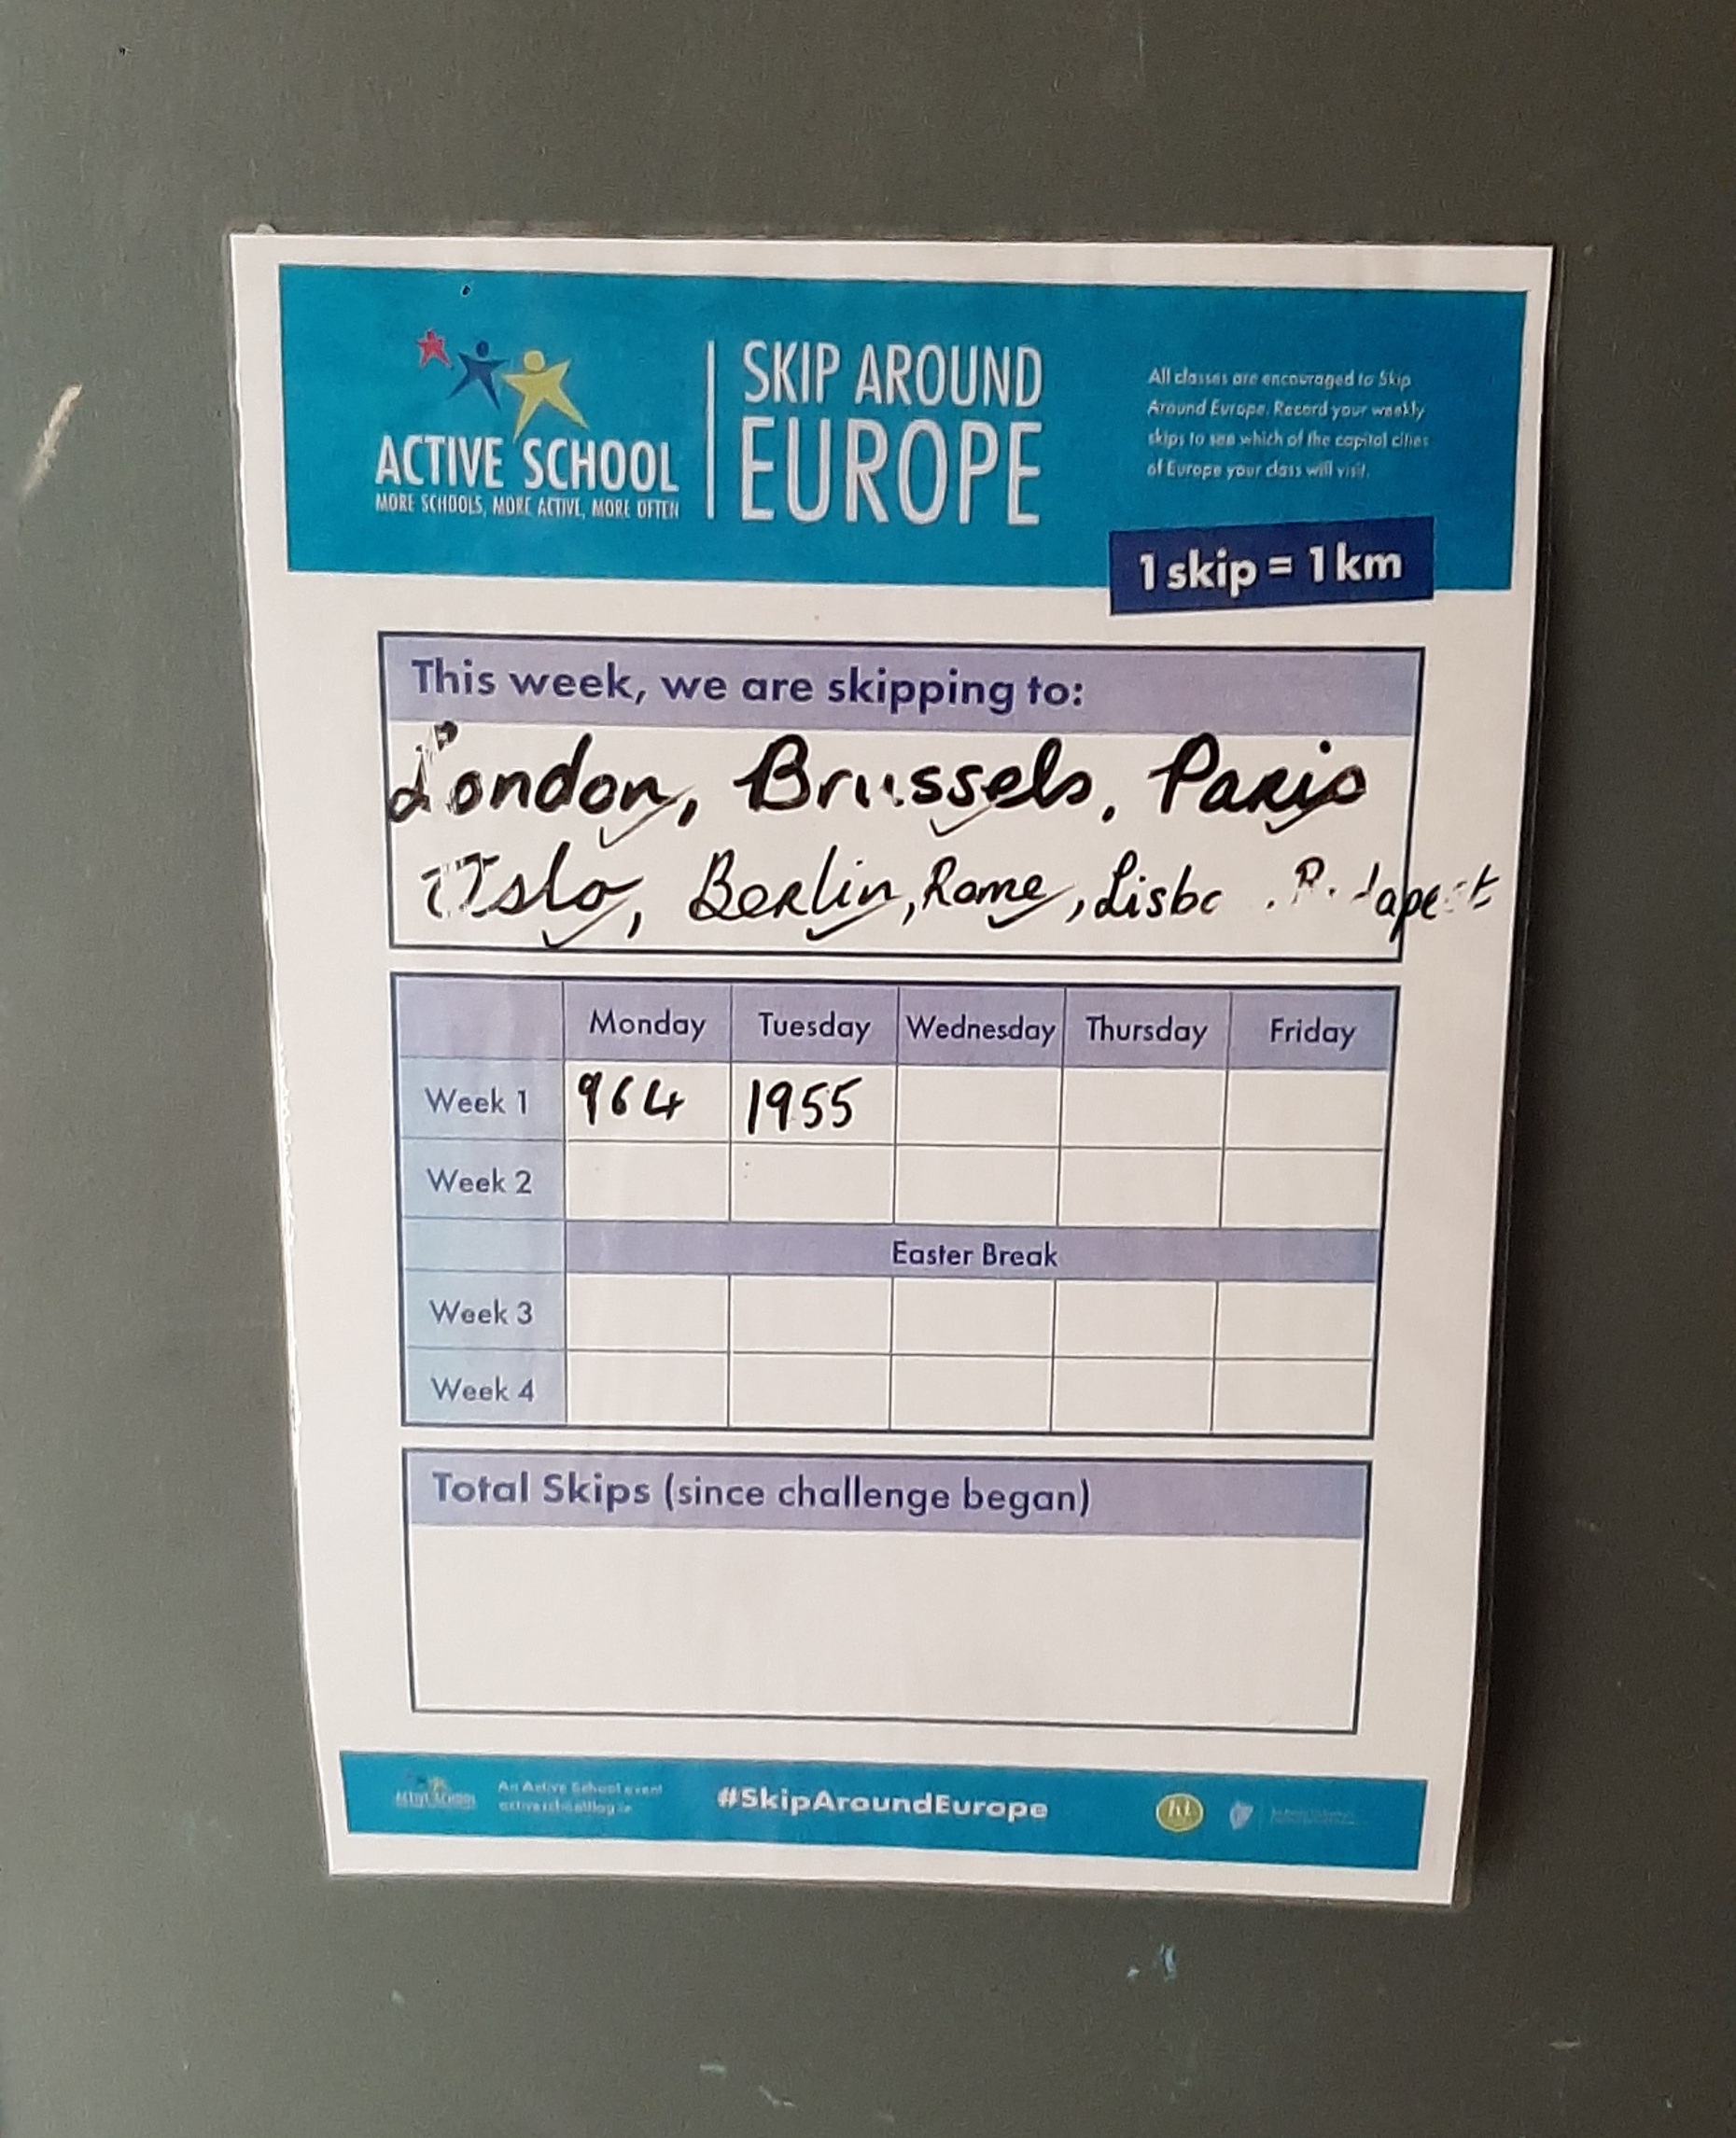 ACTIVE SCHOOL
MORE SCHOOLS, MORE ACTIVE, MORE OFTEN
SKIP AROUND
EUROPE
All classes are encouraged to Skip
Around Europe. Record your weekly
skips to see which of the capital cities
of Europe your class will visit.
1 skip = 1 km
This week, we are skipping to:
London, Brussels, Paris
Oslo, Berlin, Rome, Lisbo
Monday Tuesday Wednesday Thursday Friday
Week 1 964 1955
Week 2
Easter Break
Week 3
Week 4
Total Skips (since challenge began)
An Active School event
#SkipAroundEurope